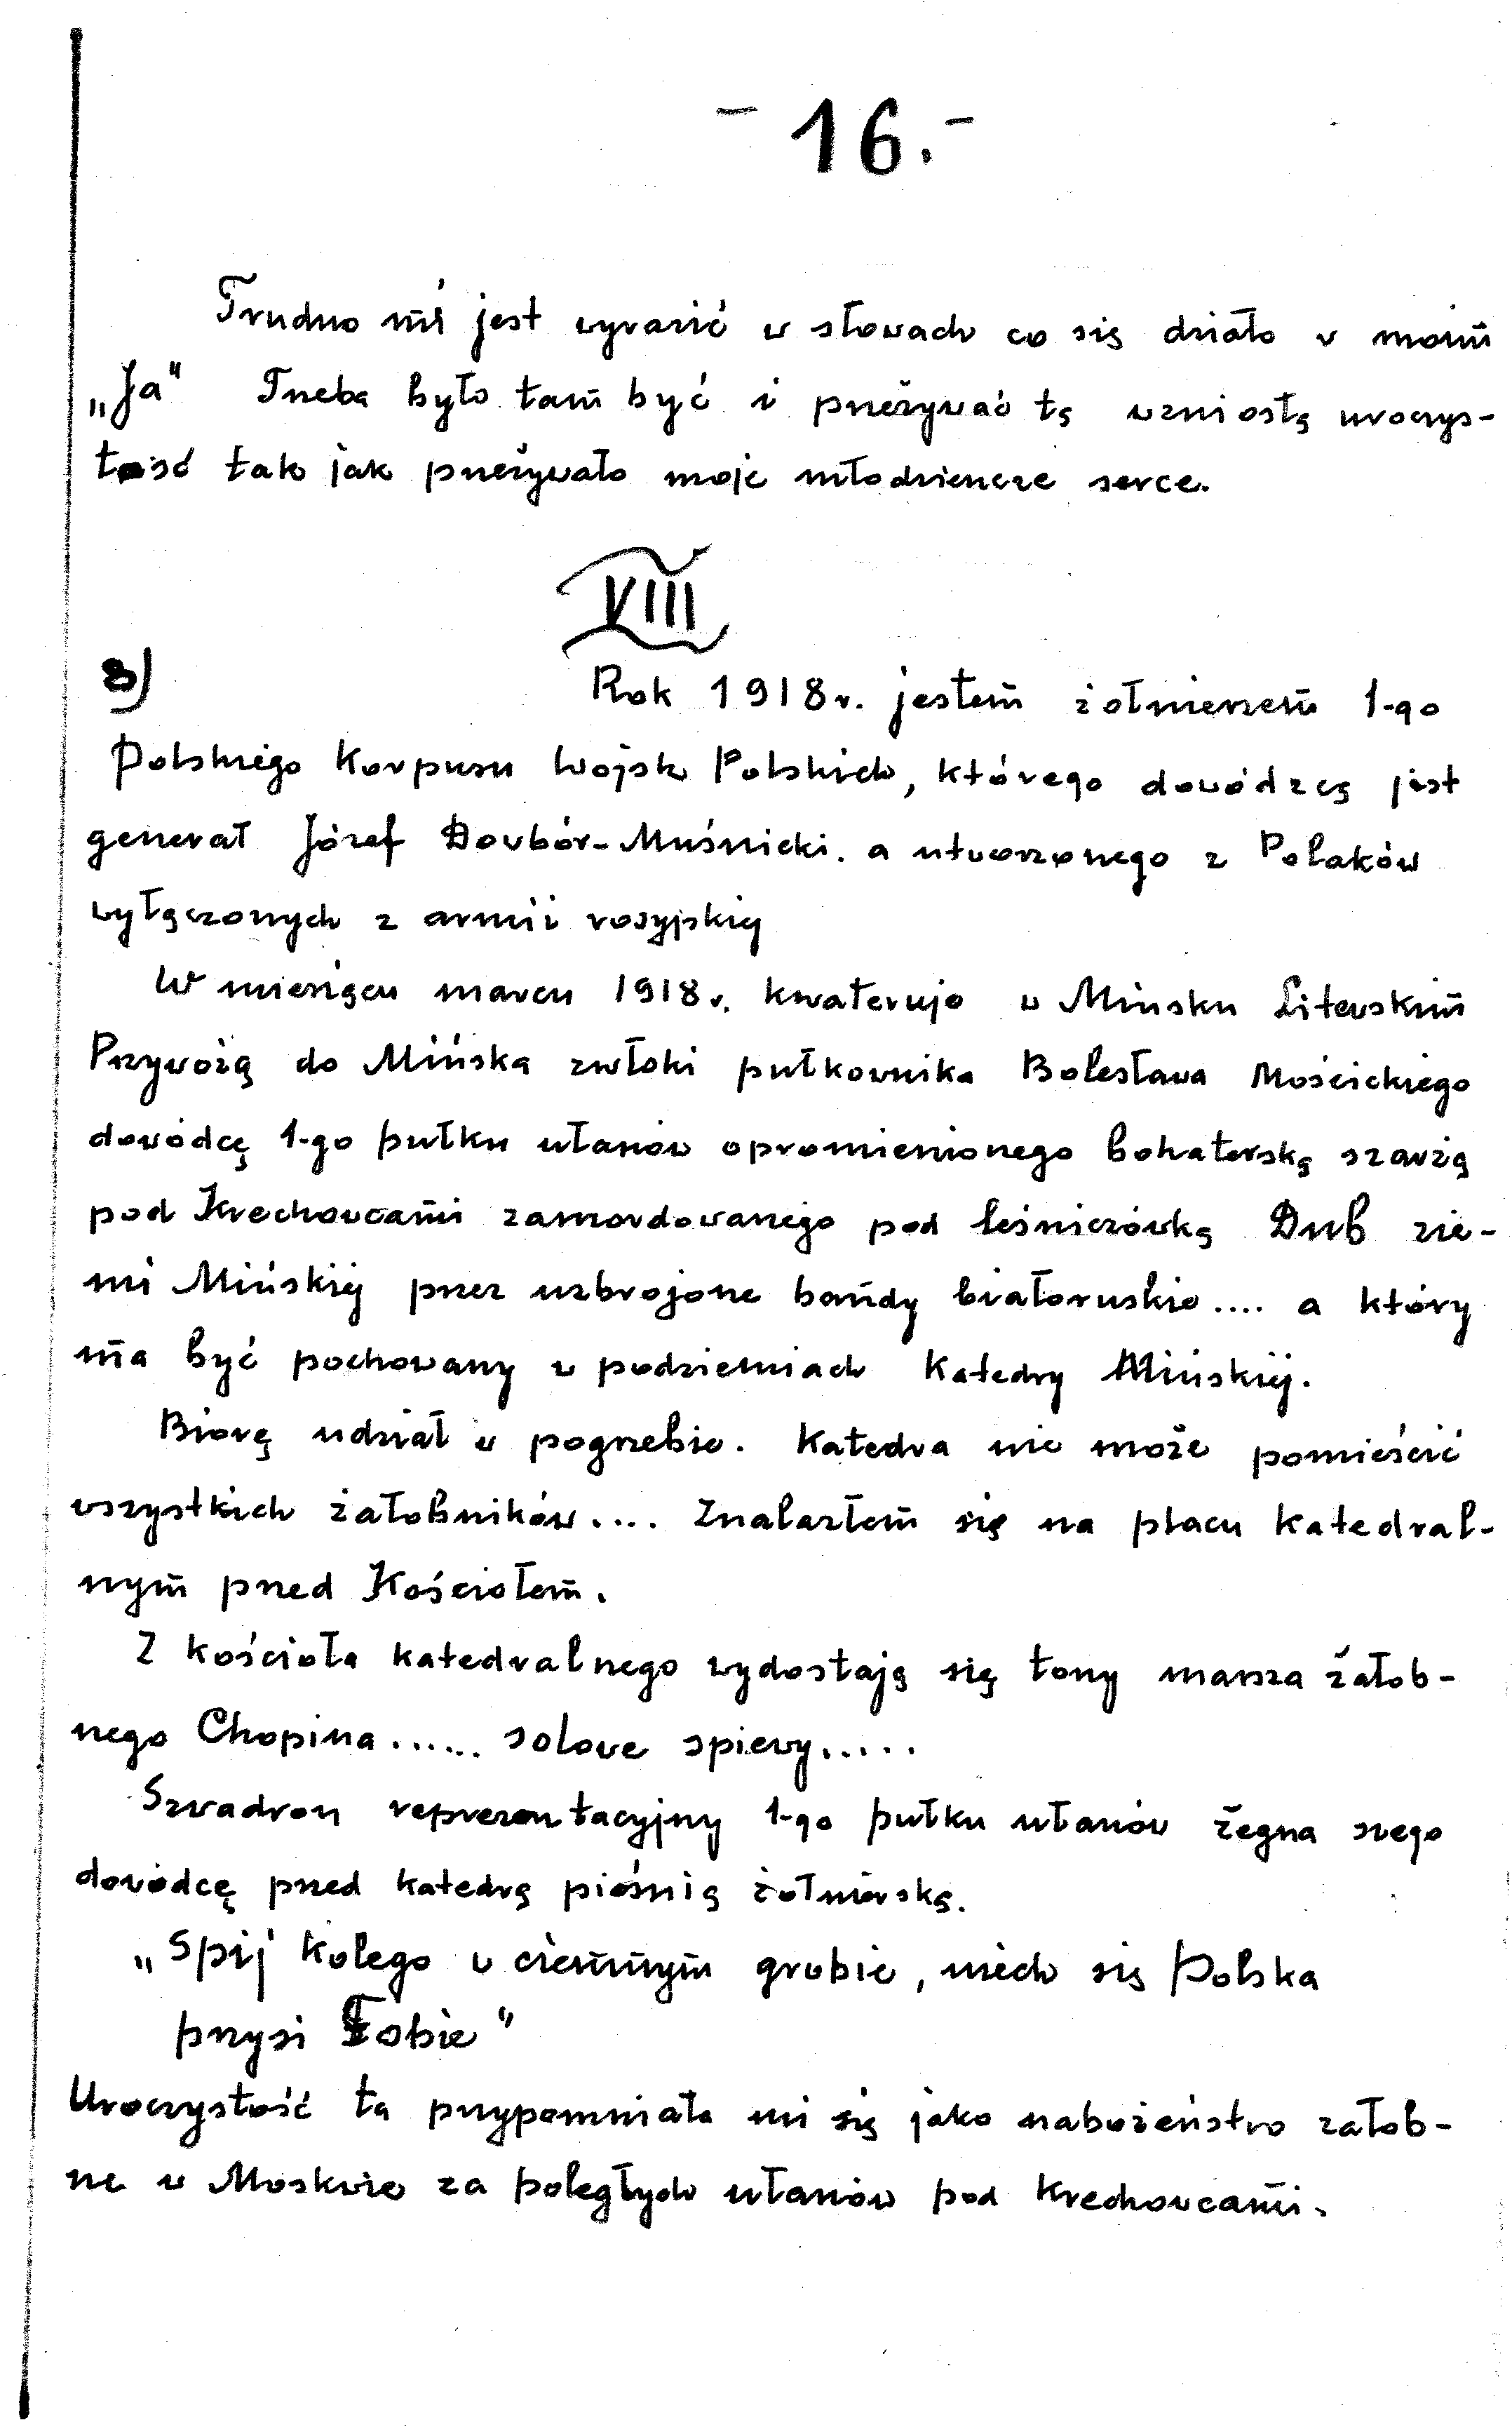 - 16. -
Trudno mi jest wyrazić w słowach co się działo w moim
„Ja" Trzeba było tam być i przeżywać tą wzniosłą uroczys-
tość tak jak przeżywało moje młodzieńcze serce.
VIII
8)
Rok 1918 r. jestem żołnierzem 1-go
Polskiego Korpusu Wojsk Polskich, którego dowódzcą jest
generał Józef Dowbór-Muśnicki. a utworzonego z Polaków
wyłączonych z armii rosyjskiej
W miesiącu marcu 1918 r. kwateruję w Mińsku Litewskim
Przywożą do Mińska zwłoki pułkownika Bolesława Mościckiego
dowódcę 1-go pułku ułanów opromienionego bohaterską szarżą
pod Krechowcami zamordowanego pod leśniczówką Dub zie-
mi Mińskiej przez uzbrojone bandy białoruskie.... a który
ma być pochowany w podziemiach Katedry Mińskiej.
Biorę udział w pogrzebie. Katedra nie może pomieścić
wszystkich żałobników.... Znalazłem się na placu katedral-
nym przed Kościołem.
Z kościoła katedralnego wydostają się tony marsza żałob-
nego Chopina...... solowe spiewy.....
Szwadron reprezentacyjny 1-go pułku ułanów żegna swego
dowódcę przed katedrą pieśnią żołnierską.
„Spij Kolego w ciemnym grobie, niech się Polska
przysi Tobie"
Uroczystość ta przypomniała mi się jako nabożeństwo żałob-
ne w Moskwie za poległych ułanów pod Krechowcami.